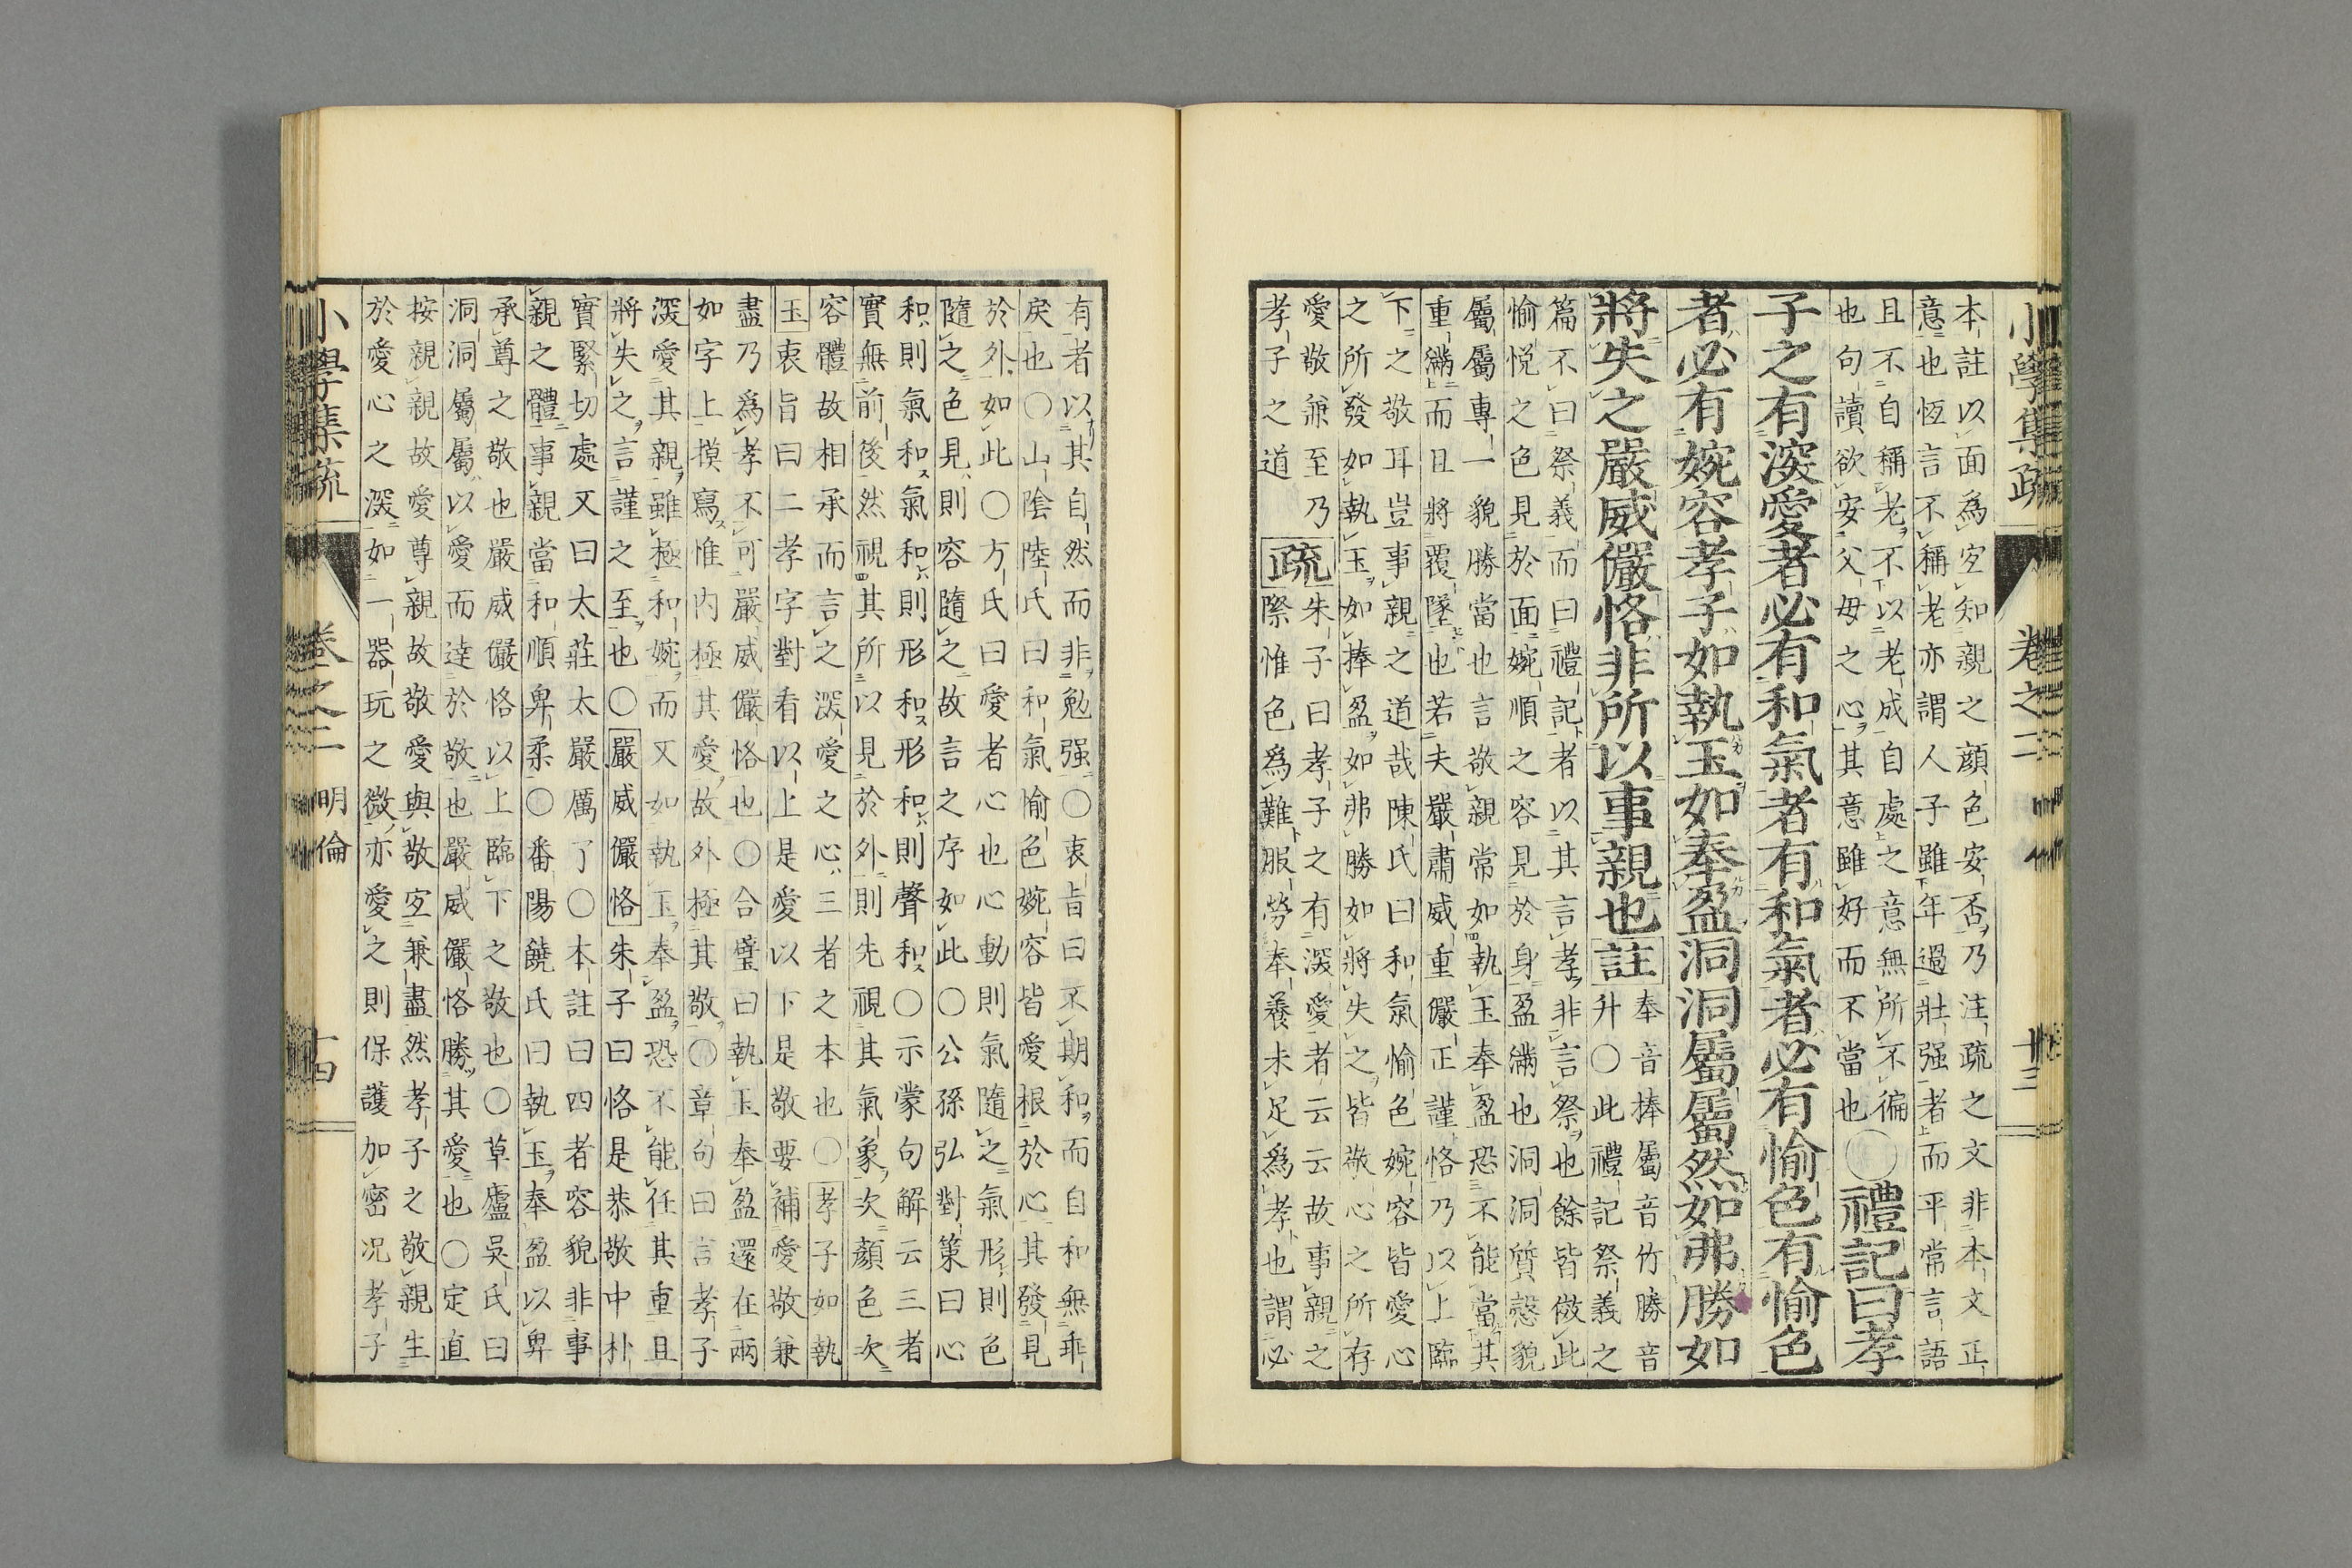 小學集疏 卷之二 十三
本註以面爲宜知親之顏色安否乃注疏之文非本文正
意也恆言不稱老亦謂人子雖年過壯强者而平常言語
且不自稱老不以老成自處之意無所不徧
也句讀欲安父母之心其意雖好而不當也
○禮記曰孝
子之有深愛者必有和氣者有和氣者必有愉色有愉色
者必有婉容孝子如執玉如奉盈洞洞屬屬然如弗勝如
將失之嚴威儼恪非所以事親也
註
奉音捧屬音竹勝音
升○此禮記祭義之
篇不曰祭義而曰禮記者以其言孝非言祭也餘皆倣此
愉悅之色見於面婉順之容見於身盈滿也洞洞質慤貌
屬屬專一貌勝當也言敬親常如執玉奉盈恐不能當其
重滿而且將覆墜也若夫嚴肅威重儼正謹恪乃以上臨
下之敬耳豈事親之道哉陳氏曰和氣愉色婉容皆愛心
之所發如執玉如捧盈如弗勝如將失之皆敬心之所存
愛敬兼至乃
孝子之道
疏
朱子曰孝子之有深愛者云云故事親之
際惟色爲難服勞奉養未足爲孝也謂必
有者以其自然而非勉强○衷旨曰不期和而自和無乖
戾也○山陰陸氏曰和氣愉色婉容皆愛根於心其發見
於外如此○方氏曰愛者心也心動則氣隨之氣形則色
隨之色見則容隨之故言之序如此○公孫弘對策曰心
和則氣和氣和則形和形和則聲和○示蒙句解云三者
實無前後然視其所以見於外則先視其氣象次顏色次
容體故相承而言之深愛之心三者之本也○孝子如執
玉衷旨曰二孝字對看以上是愛以下是敬要補愛敬兼
盡乃爲孝不可嚴威儼恪也○合璧曰執玉奉盈還在兩
如字上摸寫惟內極其愛故外極其敬○章句曰言孝子
深愛其親雖極和婉而又如執玉奉盈恐不能任其重且
將失之言謹之至也○嚴威儼恪朱子曰恪是恭敬中朴
實緊切處又曰太莊太嚴厲了○本註曰四者容貌非事
親之體事親當和順卑柔○番陽饒氏曰執玉奉盈以卑
承尊之敬也嚴威儼恪以上臨下之敬也○草廬吳氏曰
洞洞屬屬以愛而達於敬也嚴威儼恪勝其愛也○定直
按親親故愛尊親故敬愛與敬宜兼盡然孝子之敬親生
於愛心之深如一器玩之微亦愛之則保護加密況孝子
小學集疏 卷之二 明倫 十四